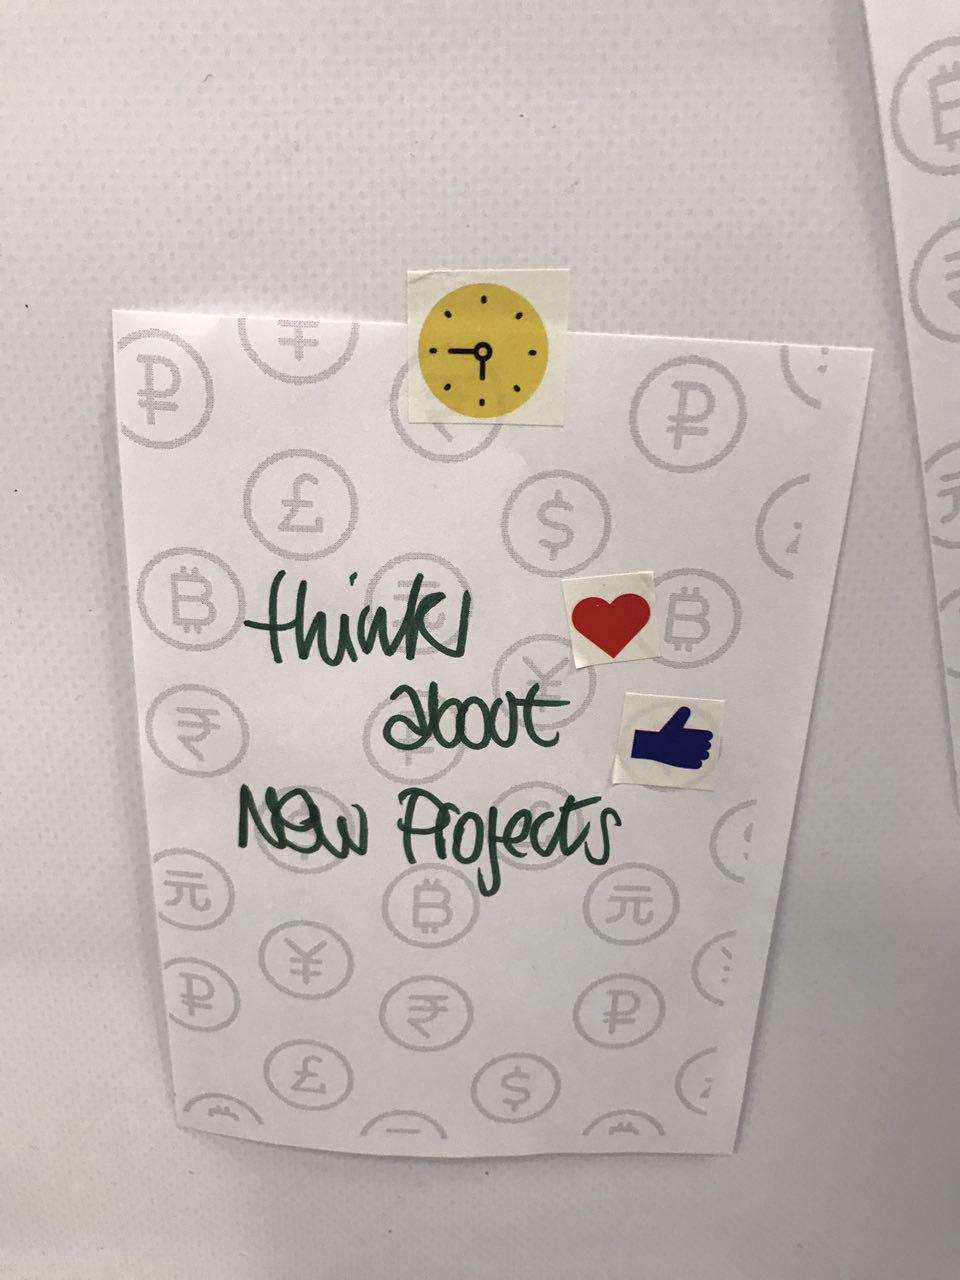 think
about
New Projects